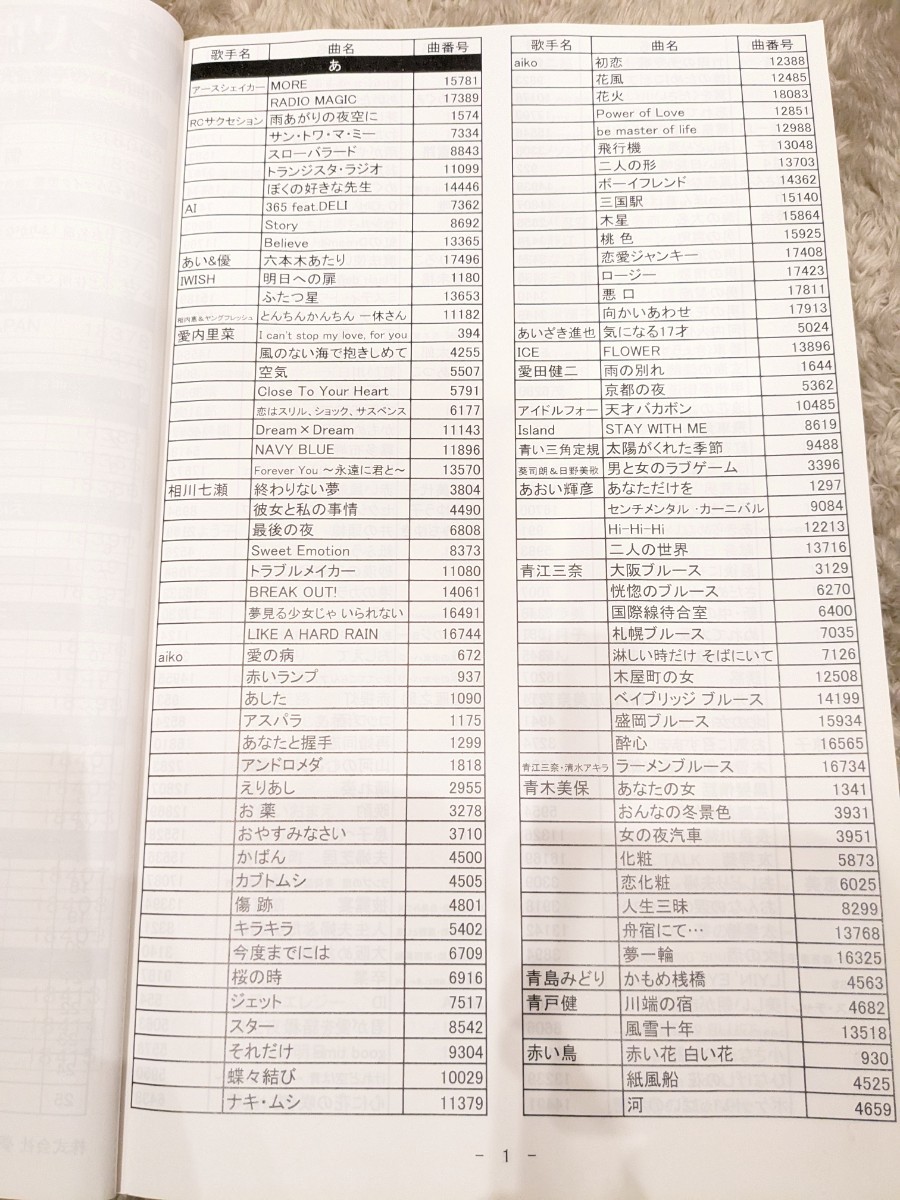 歌手名 曲名 曲番号
あ
アースシェイカー MORE 15781
RADIO MAGIC 17389
RCサクセション 雨あがりの夜空に 1574
サン・トワ・マ・ミー 7334
スローバラード 8843
トランジスタ・ラジオ 11099
ぼくの好きな先生 14446
AI 365 feat.DELI 7362
Story 8692
Believe 13365
あい&優 六本木あたり 17496
IWISH 明日への扉 1180
ふたつ星 13653
相内恵&ヤングフレッシュ とんちんかんちん 一休さん 11182
愛内里菜 I can't stop my love, for you 394
風のない海で抱きしめて 4255
空気 5507
Close To Your Heart 5791
恋はスリル、ショック、サスペンス 6177
Dream×Dream 11143
NAVY BLUE 11896
Forever You ～永遠に君と～ 13570
相川七瀬 終わりない夢 3804
彼女と私の事情 4490
最後の夜 6808
Sweet Emotion 8373
トラブルメイカー 11080
BREAK OUT! 14061
夢見る少女じゃ いられない 16491
LIKE A HARD RAIN 16744
aiko 愛の病 672
赤いランプ 937
あした 1090
アスパラ 1175
あなたと握手 1299
アンドロメダ 1818
えりあし 2955
お 薬 3278
おやすみなさい 3710
かばん 4500
カブトムシ 4505
傷 跡 4801
キラキラ 5402
今度までには 6709
桜の時 6916
ジェット 7517
スター 8542
それだけ 9304
蝶々結び 10029
ナキ・ムシ 11379
歌手名 曲名 曲番号
aiko 初恋 12388
花風 12485
花火 18083
Power of Love 12851
be master of life 12988
飛行機 13048
二人の形 13703
ボーイフレンド 14362
三国駅 15140
木星 15864
桃 色 15925
恋愛ジャンキー 17408
ロージー 17423
悪 口 17811
向かいあわせ 17913
あいざき進也 気になる17才 5024
ICE FLOWER 13896
愛田健二 雨の別れ 1644
京都の夜 5362
アイドルフォー 天才バカボン 10485
Island STAY WITH ME 8619
青い三角定規 太陽がくれた季節 9488
葵司朗&日野美歌 男と女のラブゲーム 3396
あおい輝彦 あなただけを 1297
センチメンタル・カーニバル 9084
Hi-Hi-Hi 12213
二人の世界 13716
青江三奈 大阪ブルース 3129
恍惚のブルース 6270
国際線待合室 6400
札幌ブルース 7035
淋しい時だけ そばにいて 7126
木屋町の女 12508
ベイブリッジ ブルース 14199
盛岡ブルース 15934
酔心 16565
青江三奈・清水アキラ ラーメンブルース 16734
青木美保 あなたの女 1341
おんなの冬景色 3931
女の夜汽車 3951
化粧 5873
恋化粧 6025
人生三昧 8299
舟宿にて… 13768
夢一輪 16325
青島みどり かもめ桟橋 4563
青戸健 川端の宿 4682
風雪十年 13518
赤い鳥 赤い花 白い花 930
紙風船 4525
河 4659
- 1 -